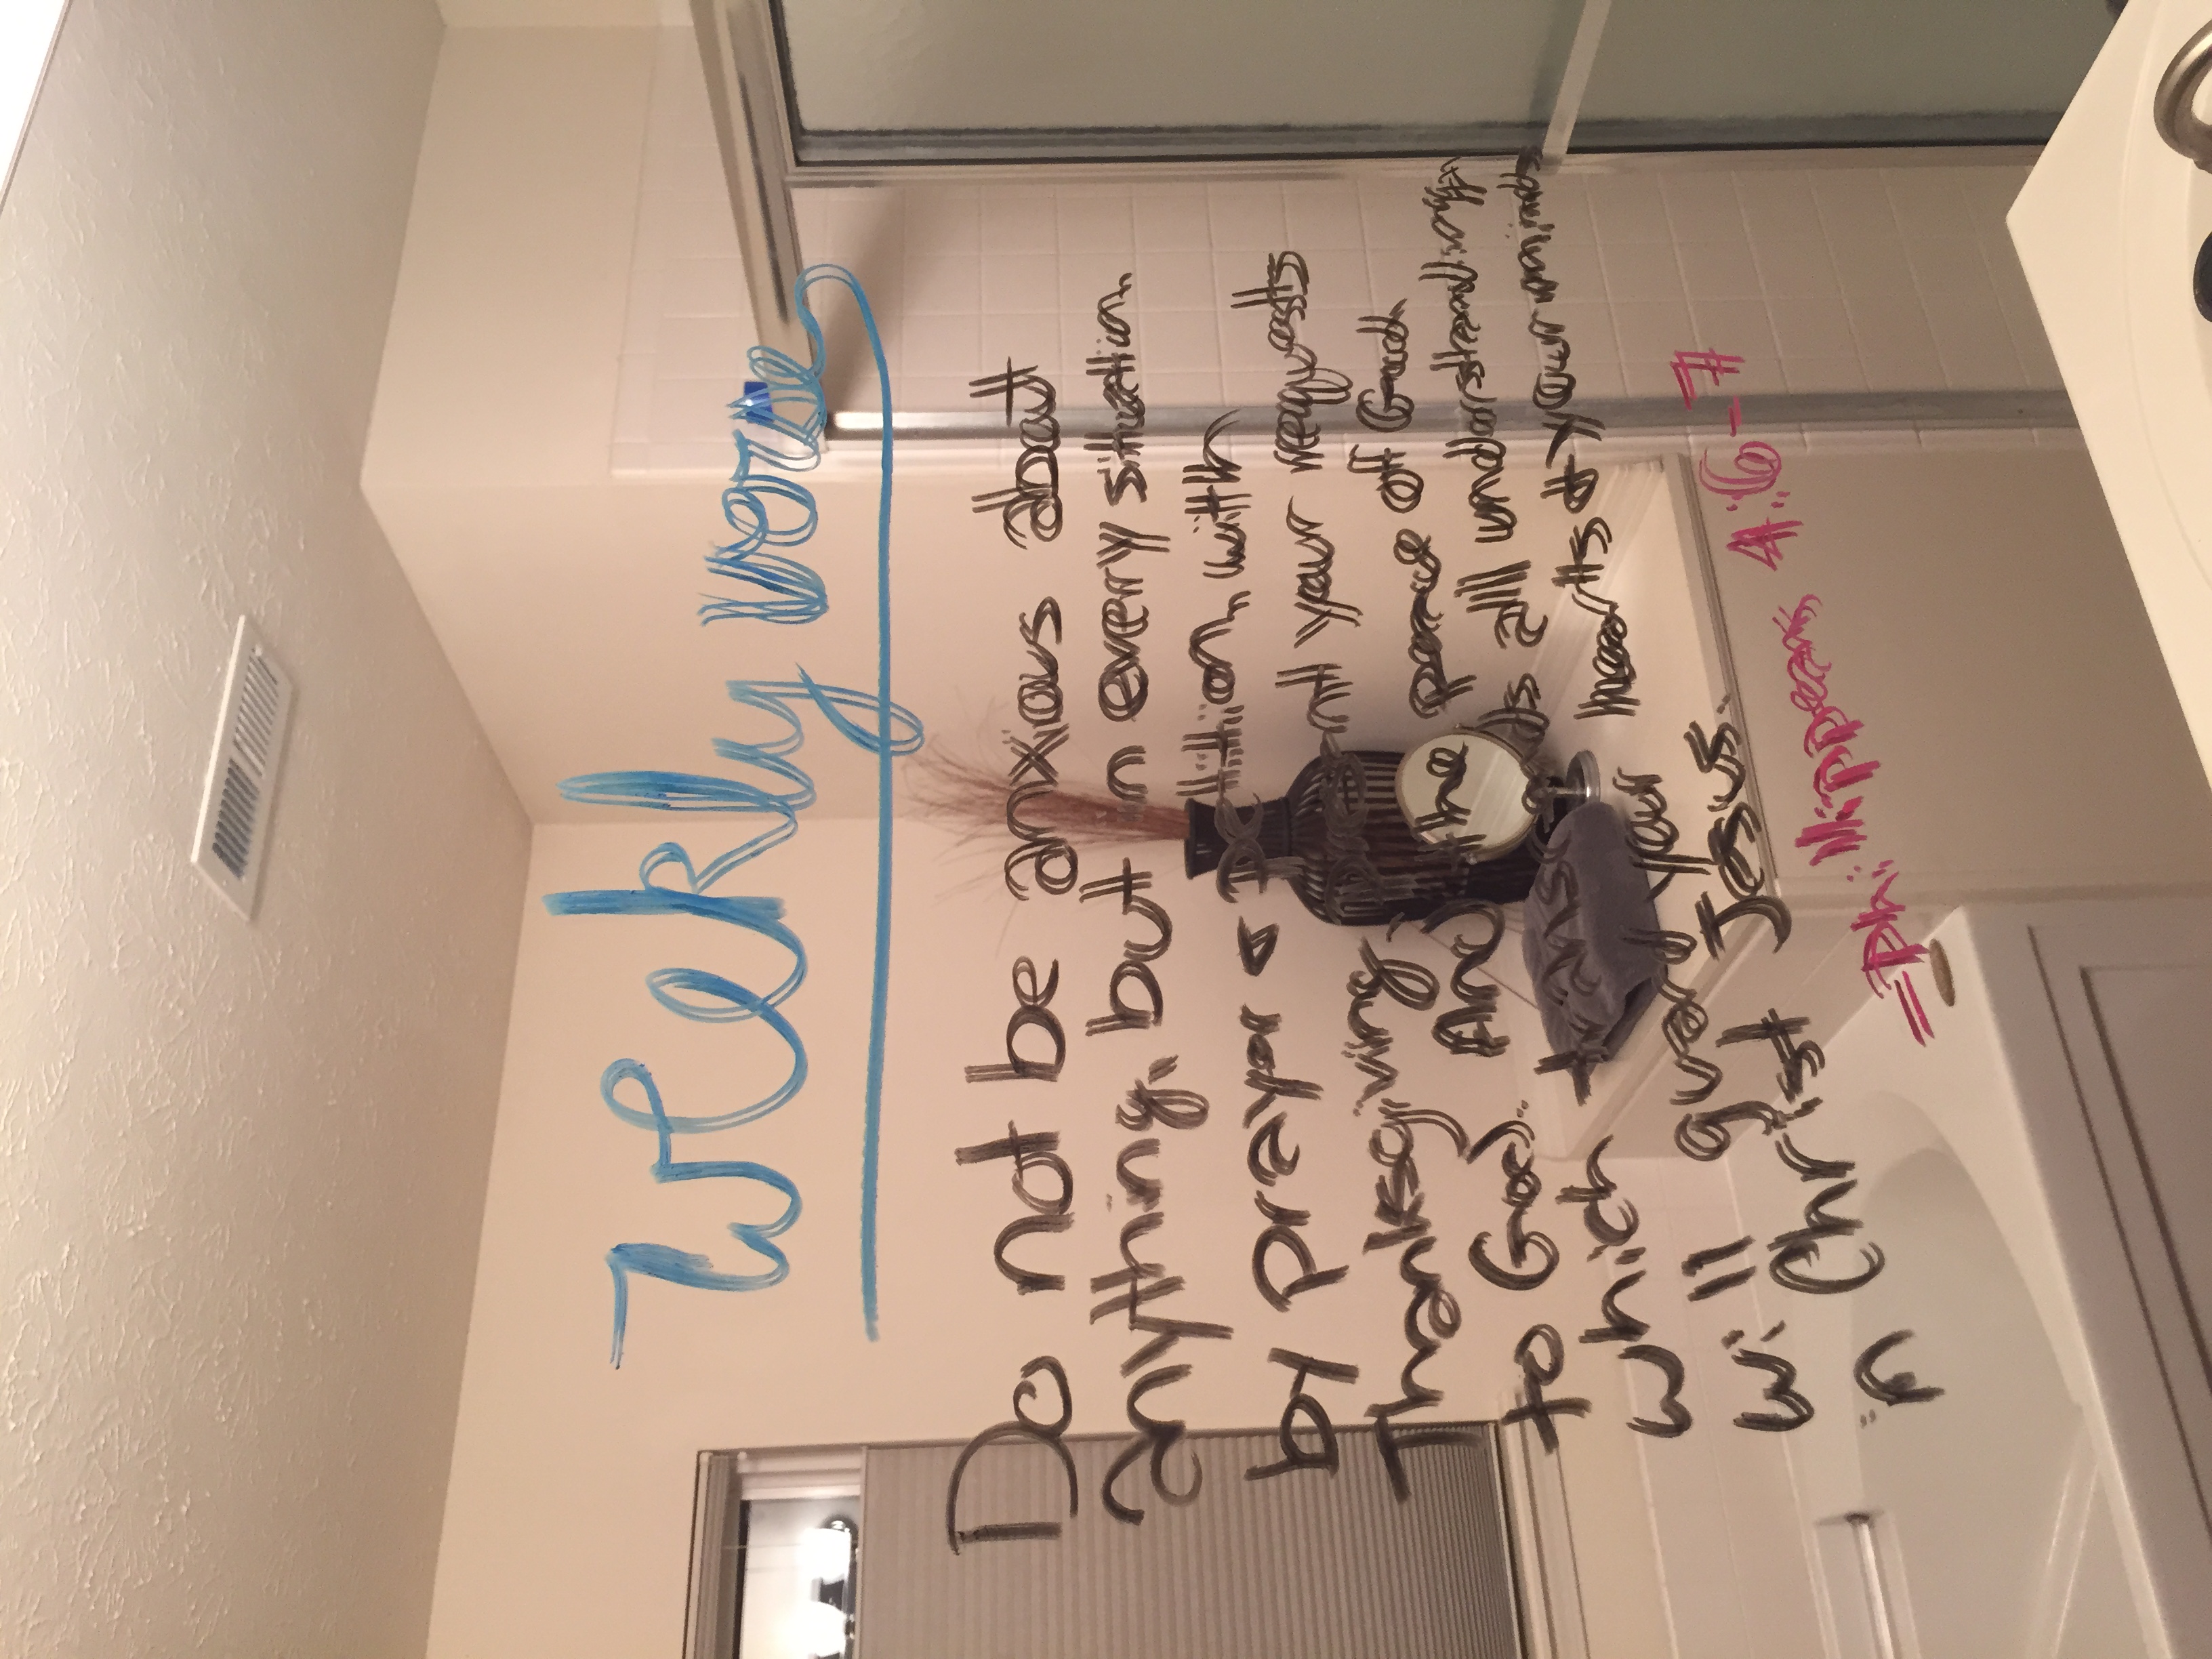 Weekly verse
Do not be anxious about
anything, but in every situation,
by prayer & petition, with
Thanksgiving, present your requests
to God. And the peace of God
which transcends all understanding,
will guard your hearts & your minds
in Christ Jesus.
- Philippeans 4:6-7